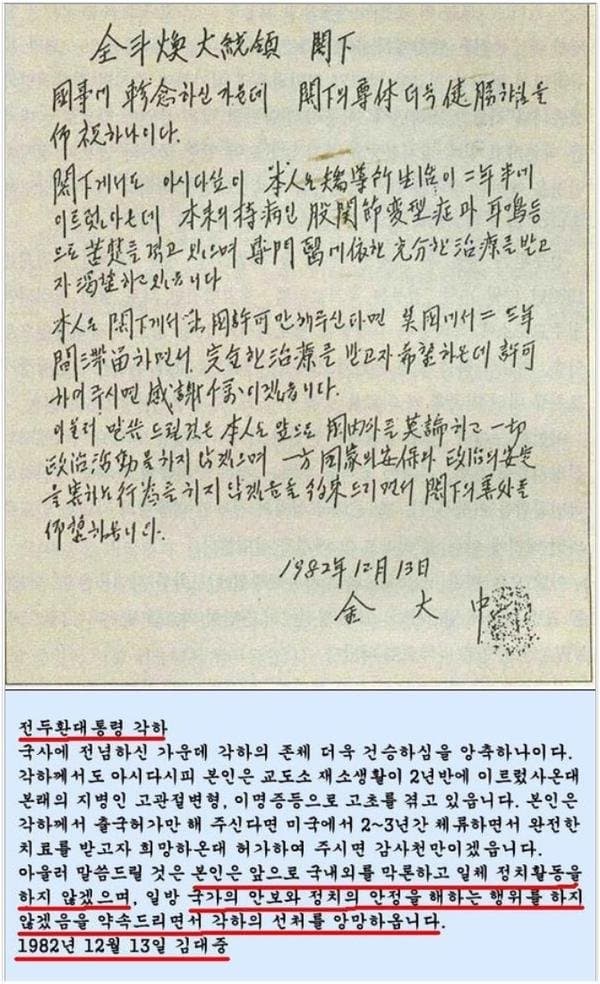 全斗煥大統領 閣下
國事에 軫念하신 가운데 閣下의 尊体 더욱 健勝하심을
仰祝하나이다.
閣下게서도 아시다싶이 本人은 矯導所 生活이 二年半에
이르렀사온데 本來의 持病인 股關節変型症과 耳鳴등
으로 苦楚를 겪고 있으며 專門醫에 依한 充分한 治療를 받고
자 渴望하고 있읍니다
本人은 閣下게서 出國許可만 해주신다면 美國에서 二 三年
間 滯留하면서 完全한 治療를 받고자 希望하온데 許可
하여 주시면 感謝千萬이겠읍니다.
아울러 말씀 드릴것은 本人은 앞으로 國內外를 莫論하고 一切
政治活動을 하지 않겠으며 一方 國家의 安保와 政治의 安定
을 害하는 行爲를 하지 않겠음을 約束드리면서 閣下의 善處를
仰望하옵니다.
1982年 12月 13日
金 大 中
전두환대통령 각하
국사에 전념하신 가운데 각하의 존체 더욱 건승하심을 앙축하나이다.
각하께서도 아시다시피 본인은 교도소 재소생활이 2년반에 이르렀사온대
본래의 지병인 고관절변형, 이명증등으로 고초를 겪고 있읍니다. 본인은
각하께서 출국허가만 해 주신다면 미국에서 2~3년간 체류하면서 완전한
치료를 받고자 희망하온대 허가하여 주시면 감사천만이겠읍니다.
아울러 말씀드릴 것은 본인은 앞으로 국내외를 막론하고 일체 정치활동을
하지 않겠으며, 일방 국가의 안보와 정치의 안정을 해하는 행위를 하지
않겠음을 약속드리면서 각하의 선처를 앙망하옵니다.
1982년 12월 13일 김대중